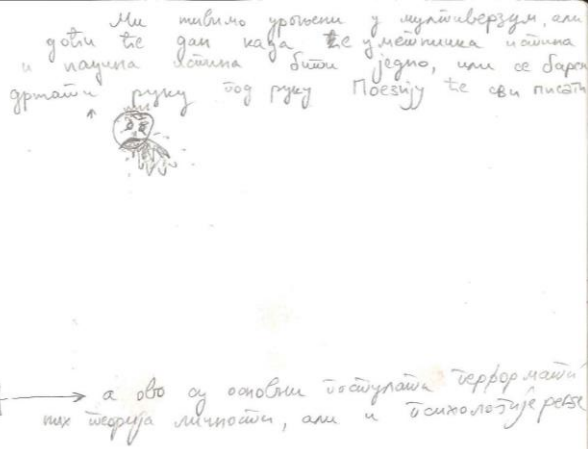 Ми живимо уроњени у мултиверзум, али
доћи ће дан када ће уметничка истина
и научна истина бити једно, или се барем
држати руку под руку Поезију ће сви писати
а ово су основни постулати
них теорија личности, али и психологије